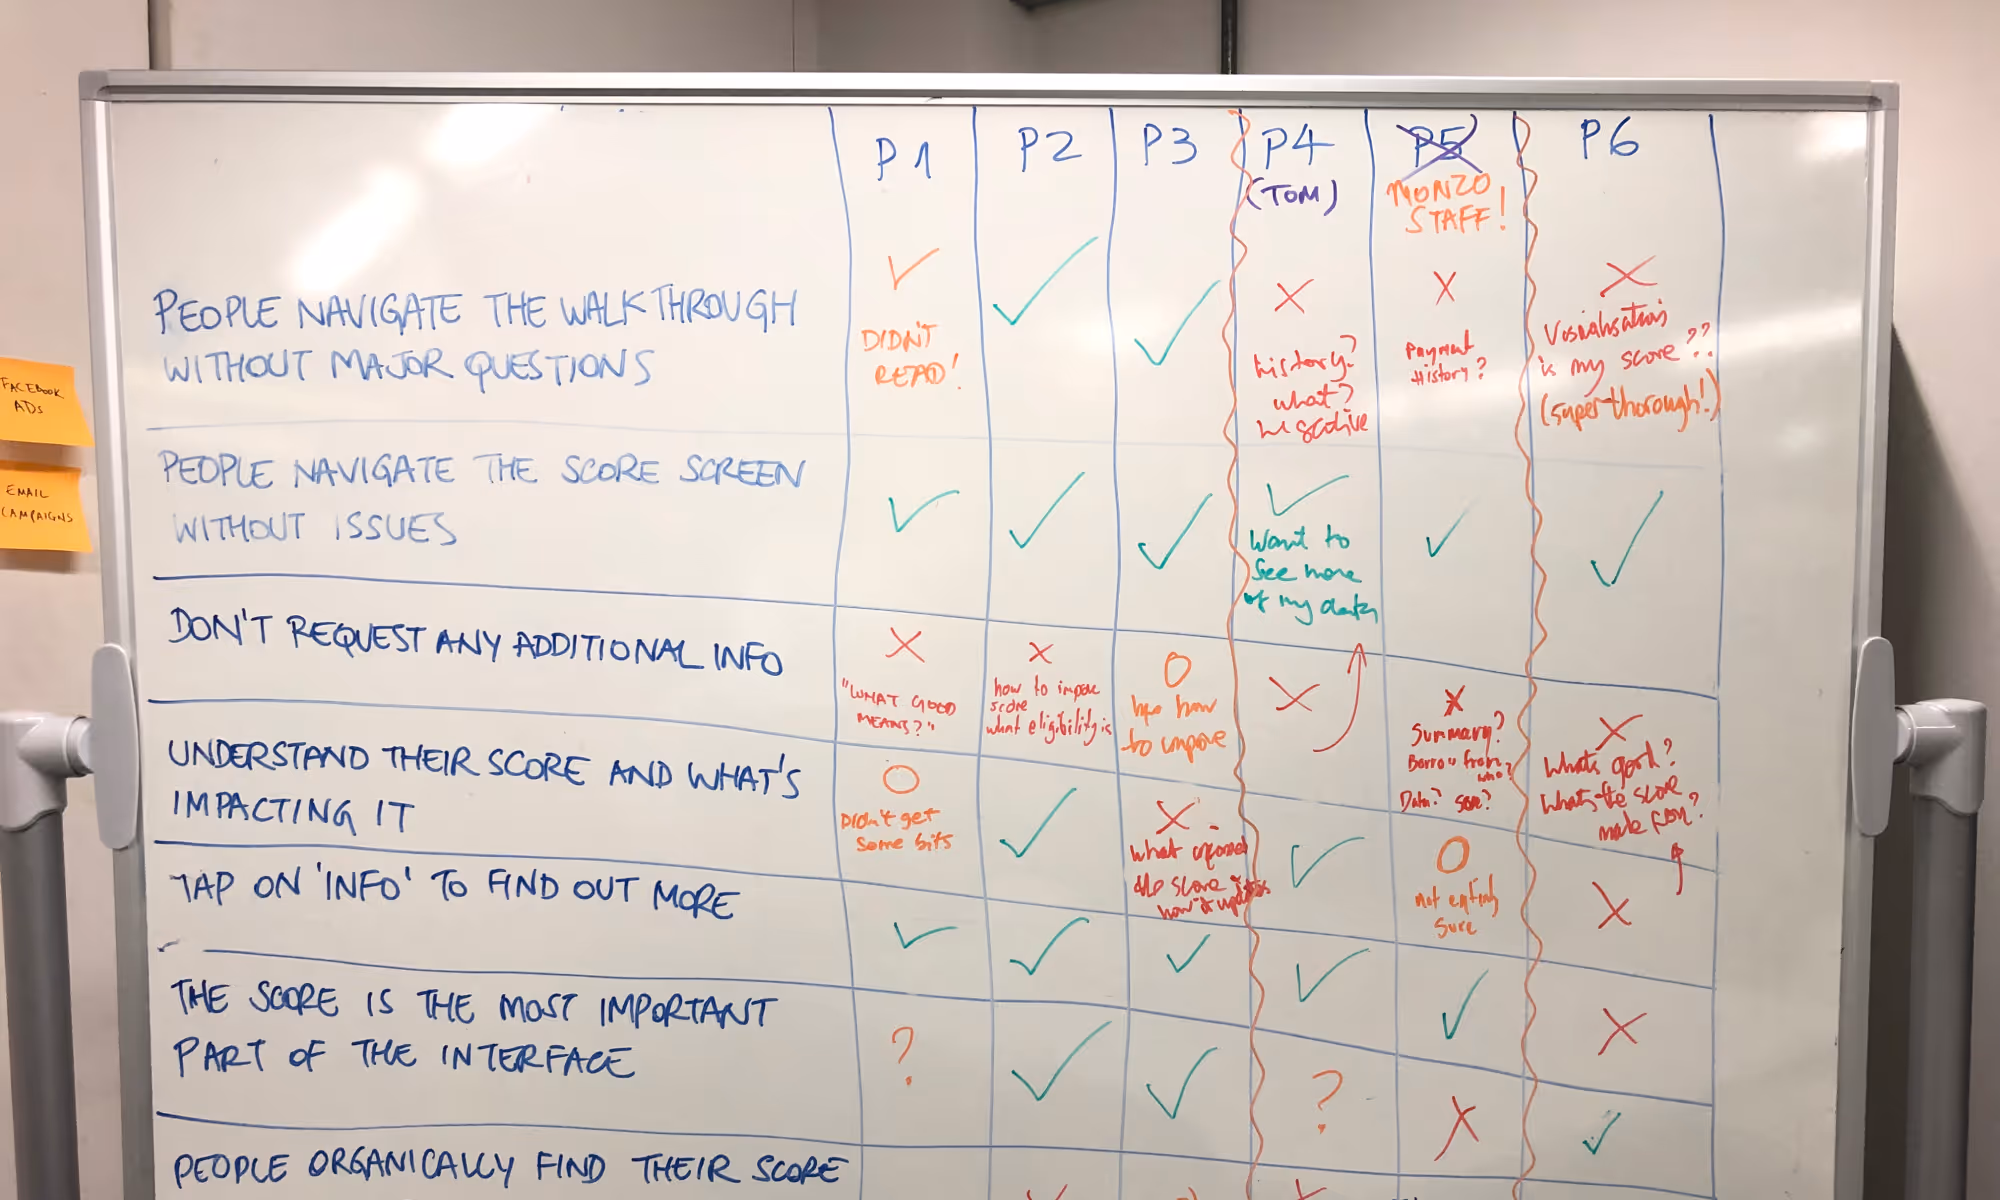 P1
P2
P3
P4
(TOM)
P5
MONZO
STAFF!
P6
FACEBOOK
ADs
EMAIL
CAMPAIGNS
PEOPLE NAVIGATE THE WALKTHROUGH
WITHOUT MAJOR QUESTIONS
DIDN'T
READ!
history?
what?
Payment
History?
is my score??
(super thorough!)
PEOPLE NAVIGATE THE SCORE SCREEN
WITHOUT ISSUES
Want to
see more
of my data
DON'T REQUEST ANY ADDITIONAL INFO
"WHAT GOOD
MEANS?"
how to
score
what eligibility is
how
to
Summary?
Borrow from
who?
Data?
What's
What's the score
made from?
UNDERSTAND THEIR SCORE AND WHAT'S
IMPACTING IT
Didn't get
some bits
What
the score
how it
not entirely
sure
TAP ON 'INFO' TO FIND OUT MORE
THE SCORE IS THE MOST IMPORTANT
PART OF THE INTERFACE
?
?
PEOPLE ORGANICALLY FIND THEIR SCORE